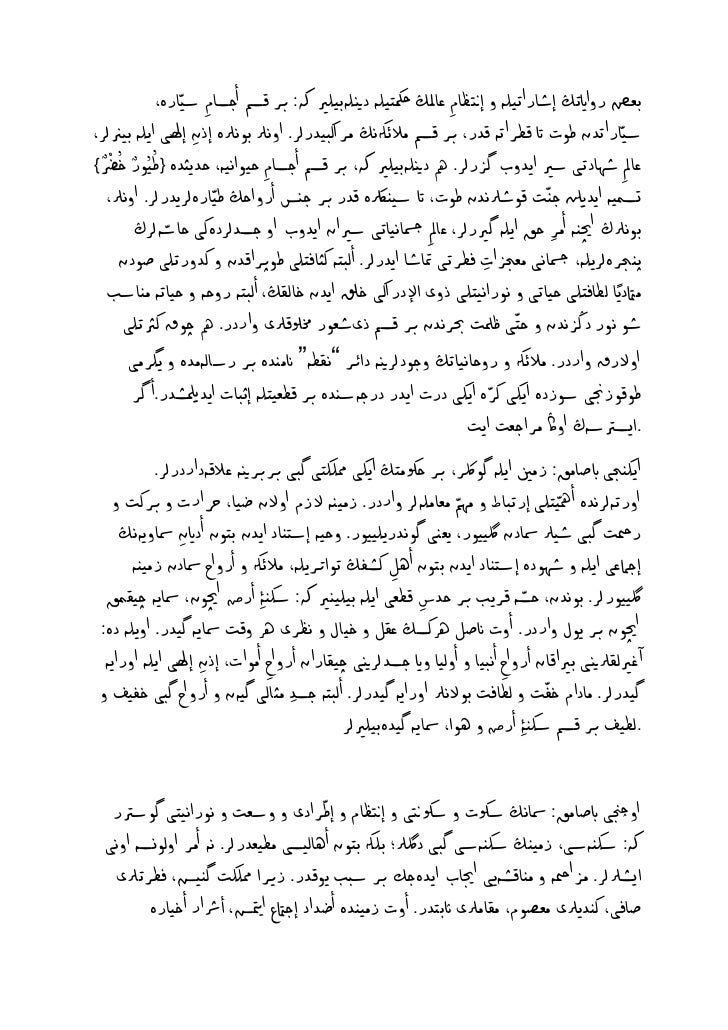 بعض روایاتك إشاراتیله و إنتظامِ عالمك حكمتیله دینله‌بیلیر كه: بر قسم أجسامِ سیّاره،
سیّاراتدن طوت تا قطراته قدر، بر قسم ملائكه‌نك مراكبیدرلر. اونلر بونلره إذنِ إلهی ایله بینرلر،
عالمِ شهادتی سیر ایدوب گزرلر. هم دینله‌بیلیر كه، بر قسم أجسامِ حیوانیه، حدیثده {طُيُورٌ خُضْرٌ}
تسمیه ایدیلن جنّت قوشلرندن طوت، تا سینكلره قدر بر جنس أرواحك طیّاره‌لریدرلر. اونلر،
بونلرك ایچنه أمرِ حق ایله گیررلر، عالمِ جسمانیاتی سیران ایدوب او جسدلرده‌كی حاسّه‌لرك
پنجره‌لریله، جسمانی معجزاتِ فطرتی تماشا ایدرلر. ألبته كثافتلی طوپراقدن و كدورتلی صودن
متمادیًا لطافتلی حیاتی و نورانیتلی ذوی الإدراكی خلق ایدن خالقك، ألبته روحه و حیاته مناسب
شو نور دڭزندن و حتّی ظلمت بحرندن بر قسم ذی‌شعور مخلوقلری واردر. هم چوق كثرتلی
اولارق واردر. ملائكه و روحانیاتك وجودلرینه دائر “نقطه” نامنده بر رساله‌مده و یگرمی
طوقوزنجی سوزده ایكی كرّه ایكی درت ایدر درجه‌سنده بر قطعیتله إثبات ایدیلمشدر.أگر
.ایسترسه‌ك اوڭا مراجعت ایت
ایكنجی باصامق: زمین ایله گوكلر، بر حكومتك ایكی مملكتی گبی بربرینه علاقه‌داردرلر.
اورته‌لرنده أهمّیتلی إرتباط و مهمّ معامله‌لر واردر. زمینه لازم اولان ضیا، حرارت و بركت و
رحمت گبی شیلر سمادن گلییور، یعنی گوندریلییور. وحیه إستناد ایدن بتون أدیانِ سماویه‌نك
إجماعی ایله و شهوده إستناد ایدن بتون أهلِ كشفك تواتریله، ملائكه و أرواح سمادن زمینه
گلییورلر. بوندن، حسّه قریب بر حدسِ قطعی ایله بیلینیر كه: سكنهٔ أرض ایچون، سمایه چیقمق
ایچون بر یول واردر. أوت ناصل هركسك عقل و خیال و نظری هر وقت سمایه گیدر. اویله ده:
آغیرلقلرینی بیراقان أرواحِ أنبیا و أولیا ویا جسدلرینی چیقاران أرواحِ أموات، إذنِ إلهی ایله اورایه
گیدرلر. مادام خفّت و لطافت بولانلر اورایه گیدرلر. ألبته جسدِ مثالی گیین و أرواح گبی خفیف و
.لطیف بر قسم سكنهٔ أرض و هوا، سمایه گیده‌بیلیرلر
اوچنجی باصامق: سمانك سكوت و سكونتی و إنتظام و إطّرادی و وسعت و نورانیتی گوسترر
كه: سكنه‌سی، زمینك سكنه‌سی گبی دگللر؛ بلكه بتون أهالیسی مطیعدرلر. نه أمر اولونسه اونی
ایشلرلر. مزاحمه و مناقشه‌یی ایجاب ایده‌جك بر سبب یوقدر. زیرا مملكت گنیش، فطرتلری
صافی، كندیلری معصوم، مقاملری ثابتدر. أوت زمینده أضداد إجتماع ایتمش، أشرار أخیاره